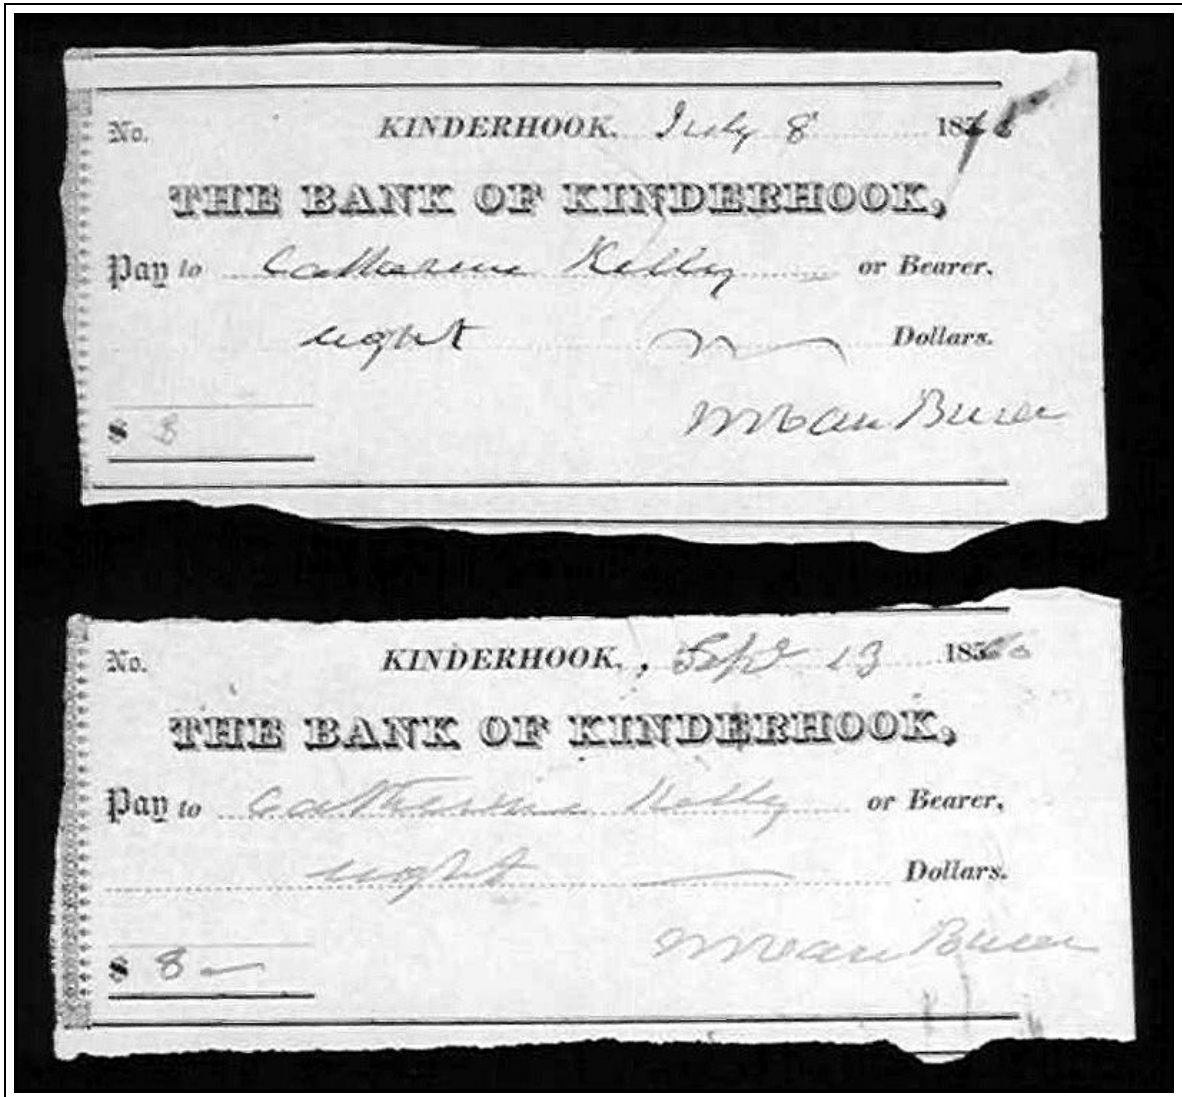 No. KINDERHOOK, July 8 18
THE BANK OF KINDERHOOK,
Pay to Catharine Kelly or Bearer,
eight Dollars.
$ 8
M Van Buren
No. KINDERHOOK, Sept 13 185
THE BANK OF KINDERHOOK,
Pay to Catharine Kelly or Bearer,
eight Dollars.
$ 8
M Van Buren